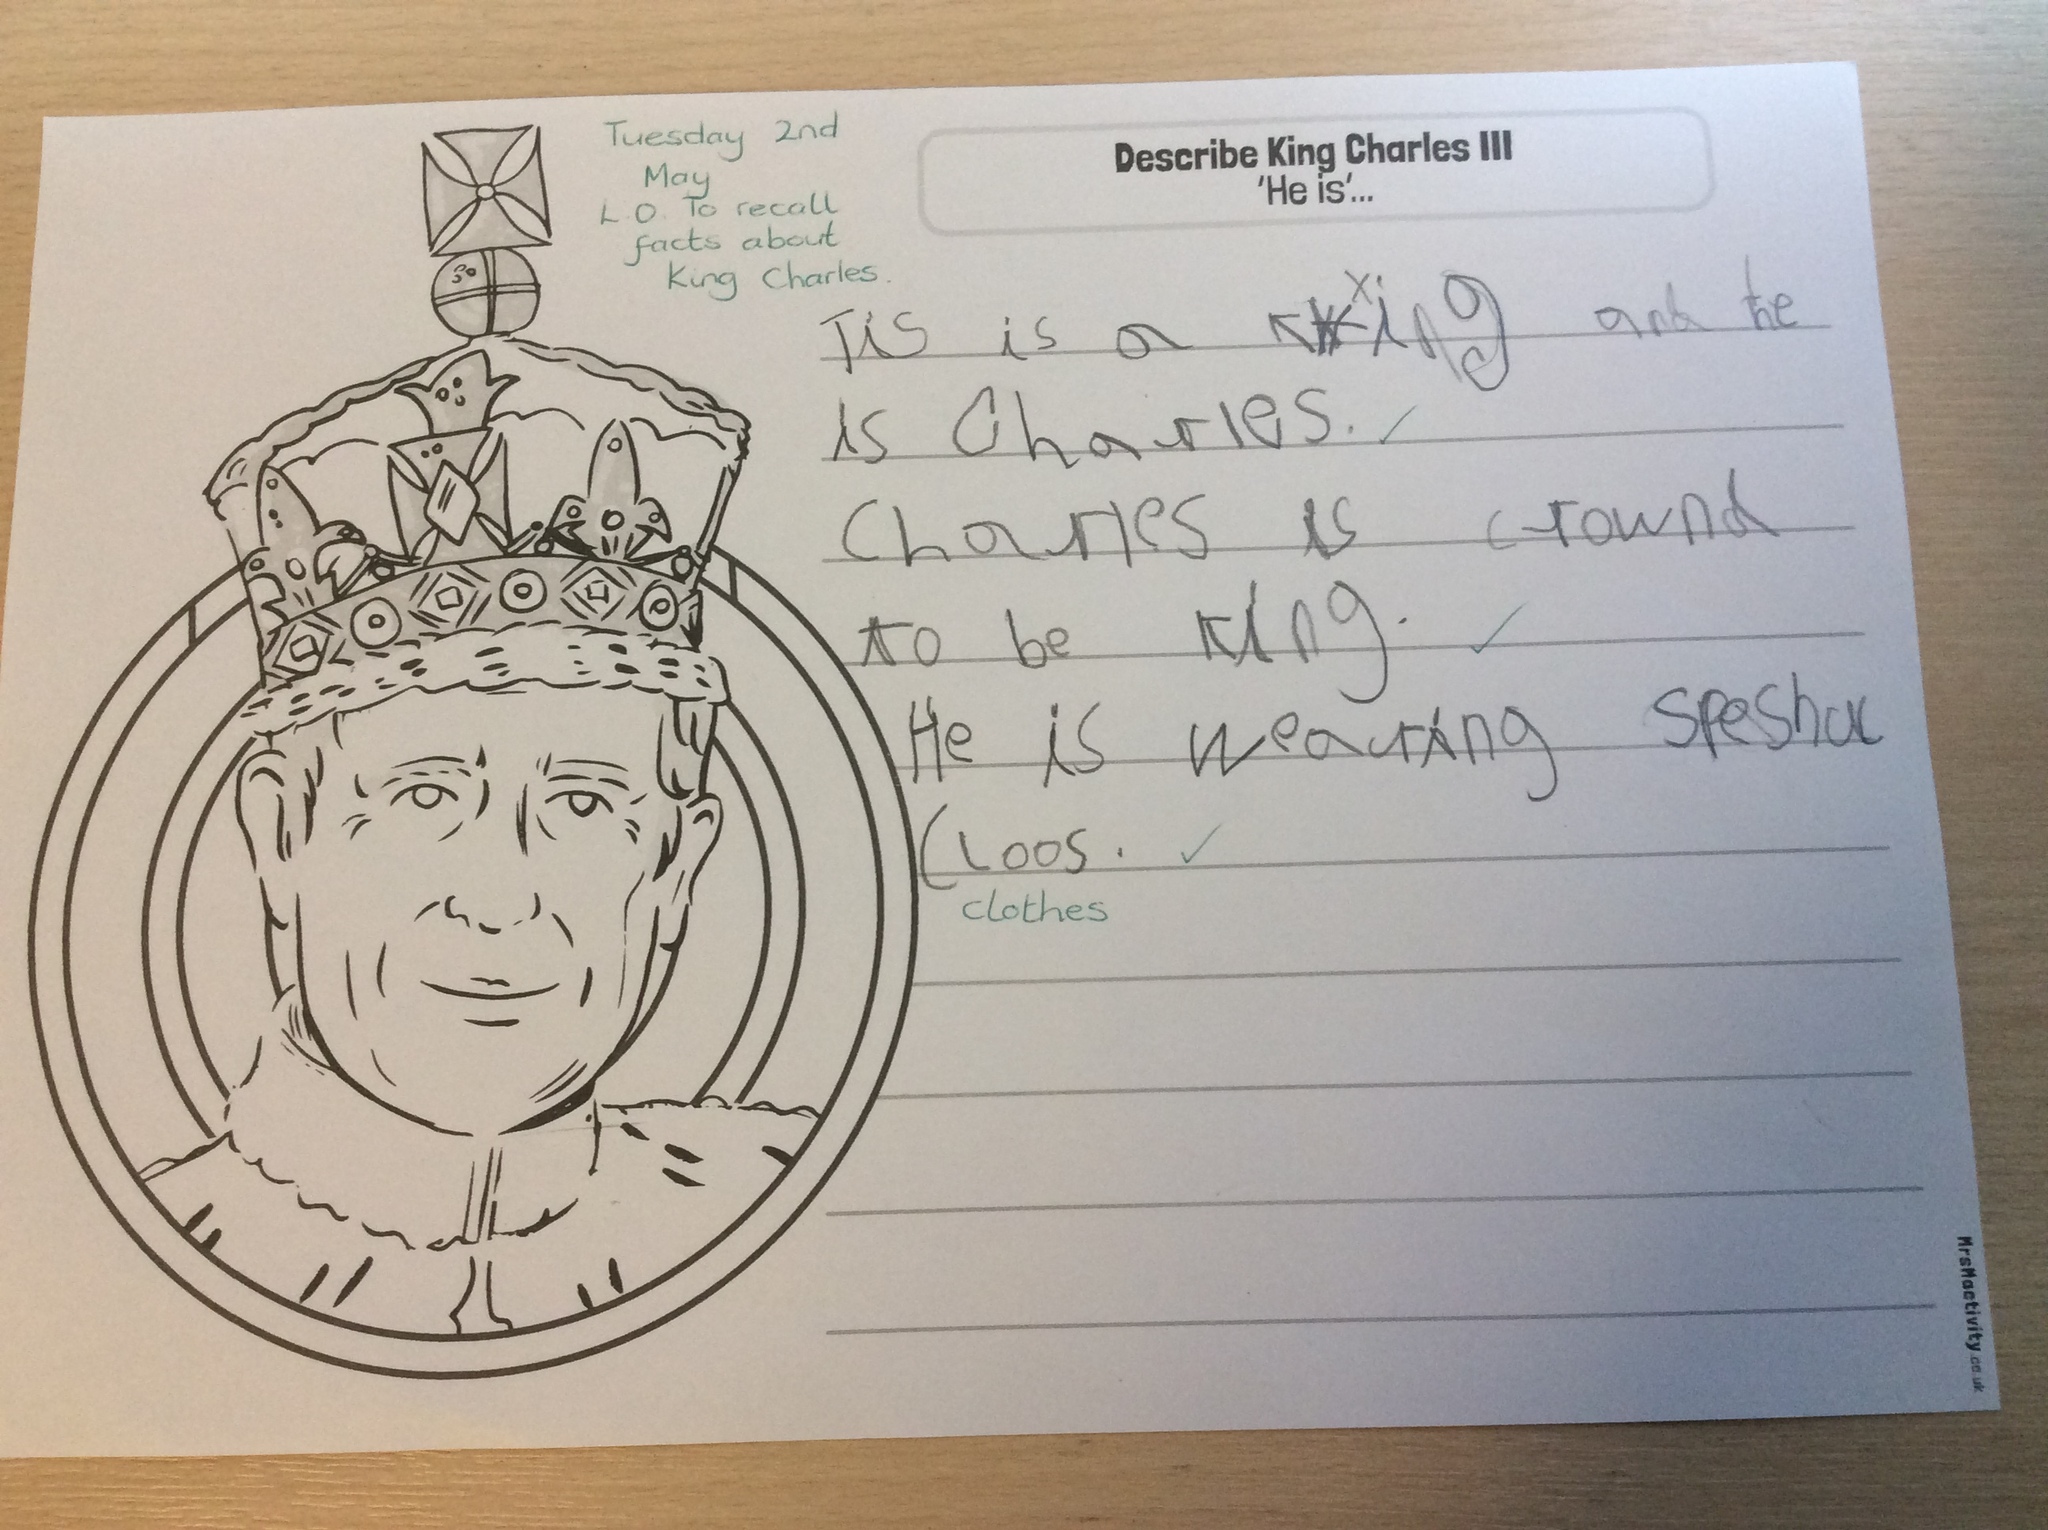 Tuesday 2nd
May
L.O. To recall
facts about
King Charles.
Describe King Charles III
'He is'...
Tis is a king and he
is Charles.
Charles is crownd
to be king.
He is wearing speshul
Cloos.
clothes
MrsMactivity.co.uk